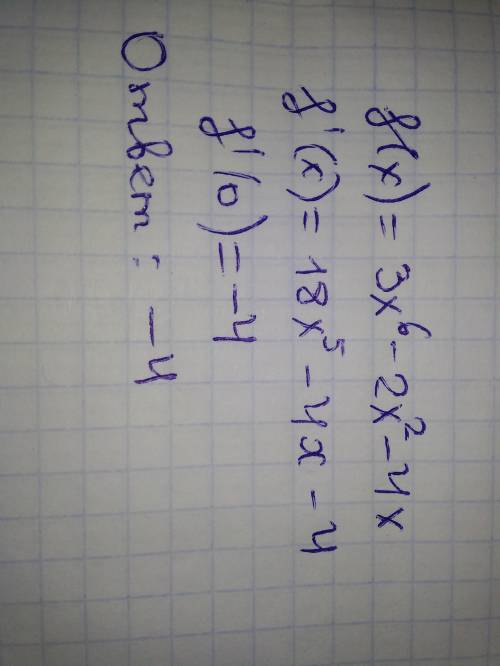 f(x) = 3x⁶ - 2x² - 4x
f'(x) = 18x⁵ - 4x - 4
f'(0) = -4
Ответ: -4